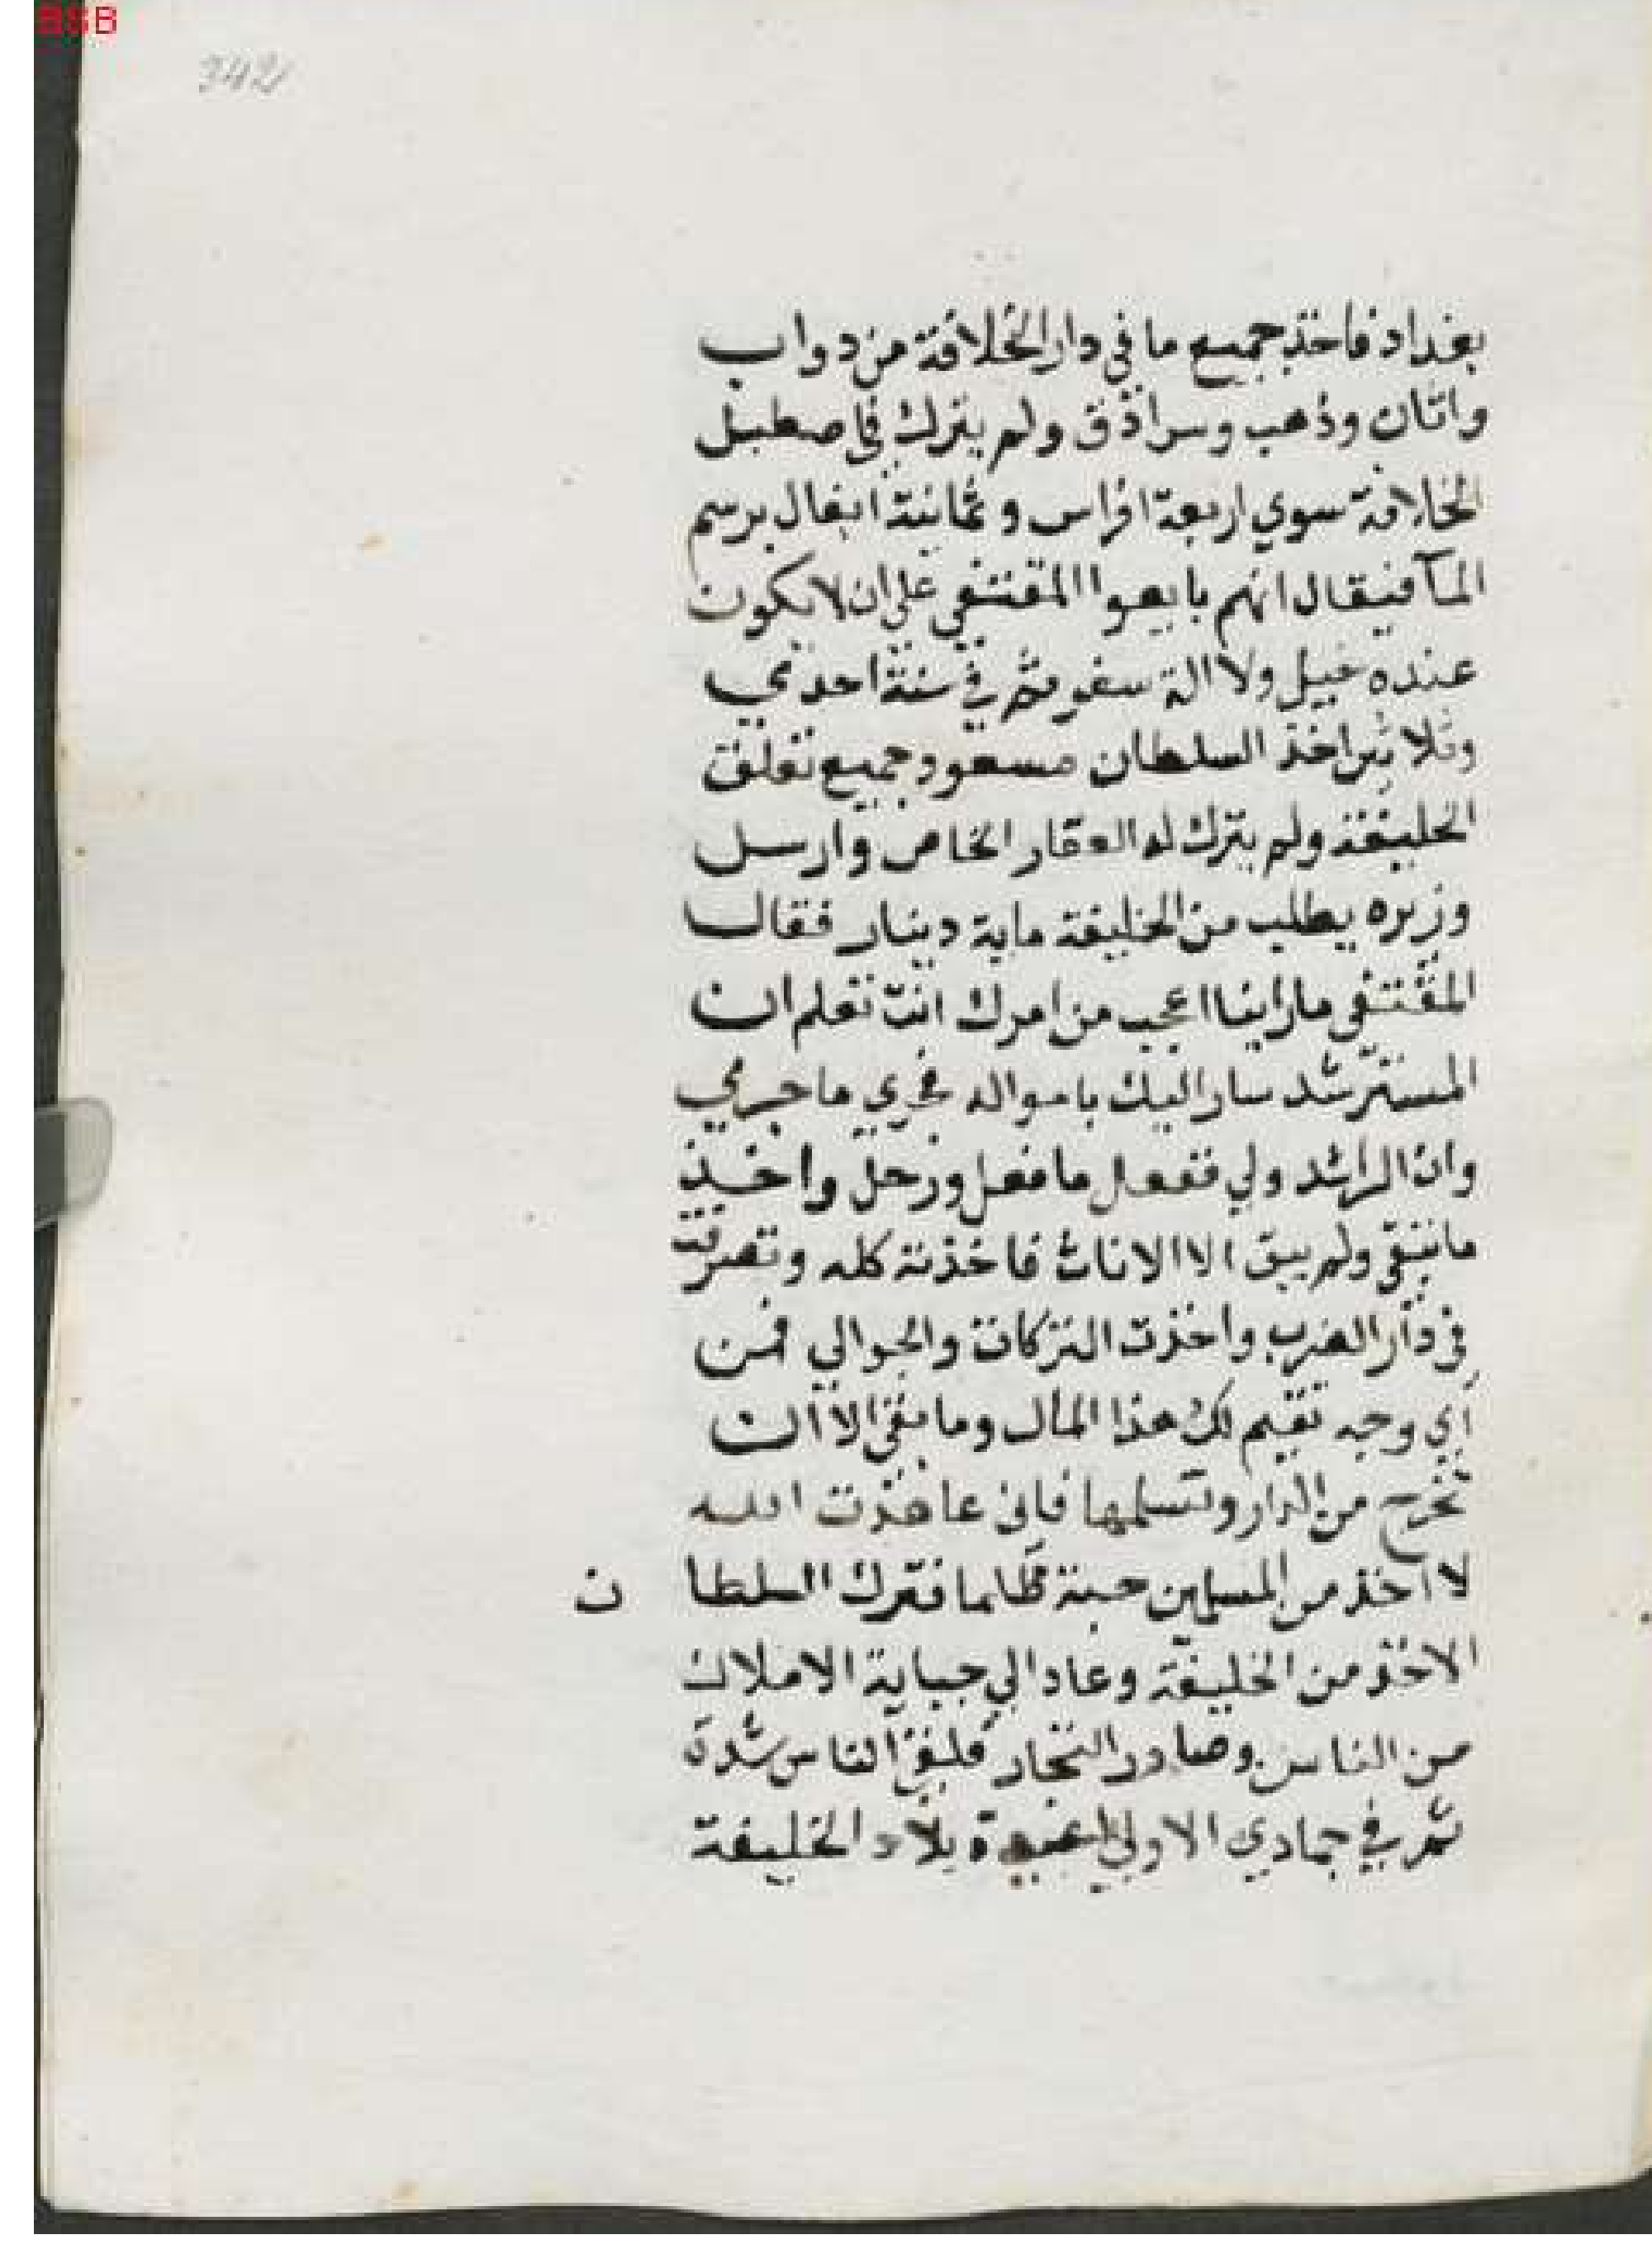 BSB
342
بغداد فاخذ جميع ما في دار الخلافة من دواب
واثاث وذهب وسرادق ولم يترك في اصطبل
الخلافة سوي اربعة افراس وثمانية ابغال برسم
المآ فيقال انهم بايعوا المقتفي علي ان لا يكون
عنده خيل ولا الة سفر ثم في سنة احدي
وثلاثين اخذ السلطان مسعود جميع تعلق
الخليفة ولم يترك له العقار الخاص وارسل
وزيره يطلب من الخليفة ماية دينار فقال
المقتفي ما راينا اعجب من امرك انت تعلم ان
المسترشد سار اليك بامواله فجري ما جري
وان الراشد ولي ففعل ما فعل ورحل واخذ
ما تبقي ولم يبق الا الاثاث فاخذته كله وتصرفت
في دار الضرب واخذت التركات والجوالي فمن
اي وجه نقيم لك هذا المال وما بقي الا ان
نخرج من الدار ونسلمها فاني عاهدت الله
لا اخذ من المسلمين حبة ظلما فترك السلطان
الاخذ من الخليفة وعاد الي جباية الاملاك
من الناس وصادر التجار فلقي الناس شدة
ثم في جمادي الاولي بلاد الخليفة